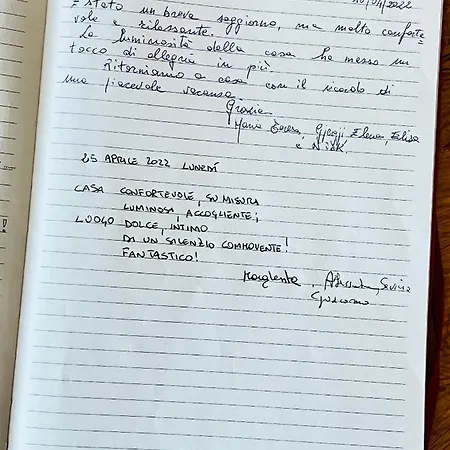 /2022
È stato un breve soggiorno, ma molto conforte=
vole e rilassante.
La luminosità della casa ha messo un
tocco di allegria in più
Ritorniamo a casa con il ricordo di
una piacevole vacanza
Grazie.
Maria Teresa, Elena,
e Nick.
25 APRILE 2022 LUNEDÍ
CASA CONFORTEVOLE, SU MISURA
LUMINOSA, ACCOGLIENTE;
LUOGO DOLCE, INTIMO
DI UN SILENZIO COMMOVENTE!
FANTASTICO!